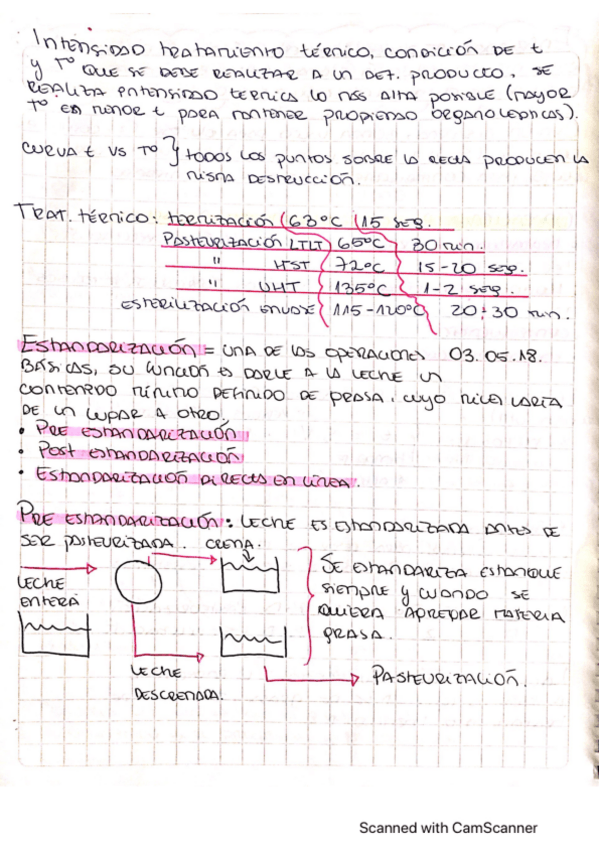 INTENSIDAD TRATAMIENTO TÉRMICO, CONDICIÓN DE t
y Tº QUE SE DEBE REALIZAR A UN DET. PRODUCTO, SE
REALIZA INTENSIDAD TÉRMICA LO MÁS ALTA POSIBLE (MAYOR
Tº EN MENOR t PARA MANTENER PROPIEDAD ORGANOLEPTICAS).
CURVA t VS Tº } TODOS LOS PUNTOS SOBRE LA RECTA PRODUCEN LA
MISMA DESTRUCCIÓN.
TRAT. TÉRMICO: TERMIZACIÓN 63ºC 15 SEG.
PASTEURIZACIÓN LTLT 65ºC 30 MIN.
" HST 72ºC 15-20 SEG.
" UHT 135ºC 1-2 SEG.
ESTERILIZACIÓN ENVASE 115-120ºC 20-30 MIN.
ESTANDARIZACIÓN = UNA DE LAS OPERACIONES 03.05.18.
BÁSICAS, SU FUNCIÓN ES DARLE A LA LECHE UN
CONTENIDO MÍNIMO DEFINIDO DE GRASA, CUYO NIVEL VARÍA
DE UN LUGAR A OTRO.
• PRE ESTANDARIZACIÓN
• POST ESTANDARIZACIÓN
• ESTANDARIZACIÓN DIRECTA EN LÍNEA.
PRE ESTANDARIZACIÓN: LECHE ES ESTANDARIZADA ANTES DE
SER PASTEURIZADA. CREMA.
LECHE
ENTERA
SE ESTANDARIZA ESTANQUE
SIEMPRE y CUANDO SE
QUIERA AGREGAR MATERIA
GRASA.
LECHE
DESCREMADA.
PASTEURIZACIÓN.
Scanned with CamScanner